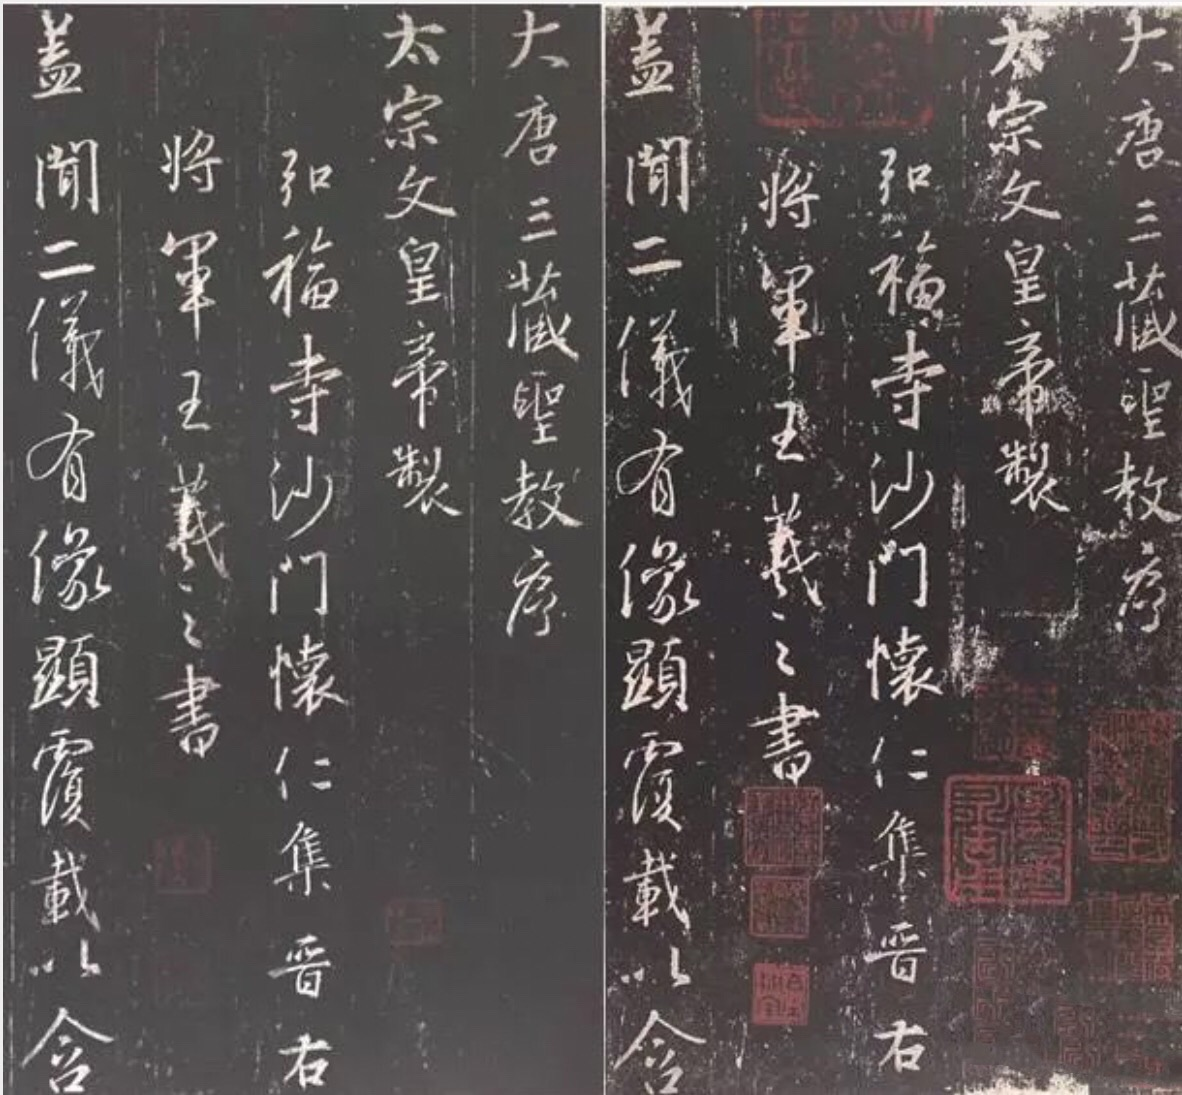 大唐三藏聖教序
太宗文皇帝製
弘福寺沙門懷仁集晉右
將軍王羲之書
蓋聞二儀有像顯覆載以含
大唐三藏聖教序
太宗文皇帝製
弘福寺沙門懷仁集晉右
將軍王羲之書
蓋聞二儀有像顯覆載以含